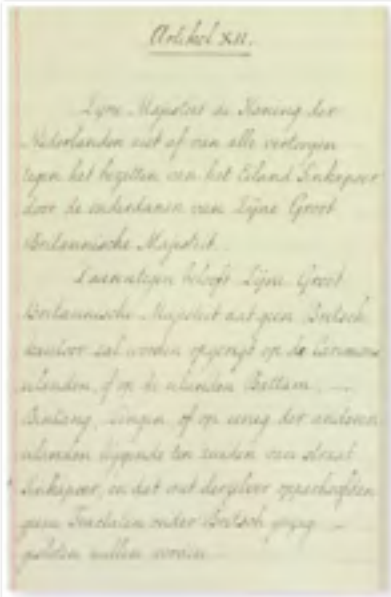 Artikel XII.
Zyne Majesteit de Koning der
Nederlanden ziet af van alle vertoogen
tegen het bezetten van het Eiland Sinkapoer
door de onderdanen van Zijne Groot
Britannische Majesteit.
Daarentegen belooft Zijne Groot
Britannische Majesteit dat geen Britsch
kantoor zal worden opgerigt op de Carimons
eilanden, of op de eilanden Battam,
Bintang, Lingen, of op eenig der anderen
eilanden liggende ten zuiden van straat
Sinkapoer, en dat met derzelver opperhoofden
geen Tractaten onder Britsch gezag
gesloten zullen worden